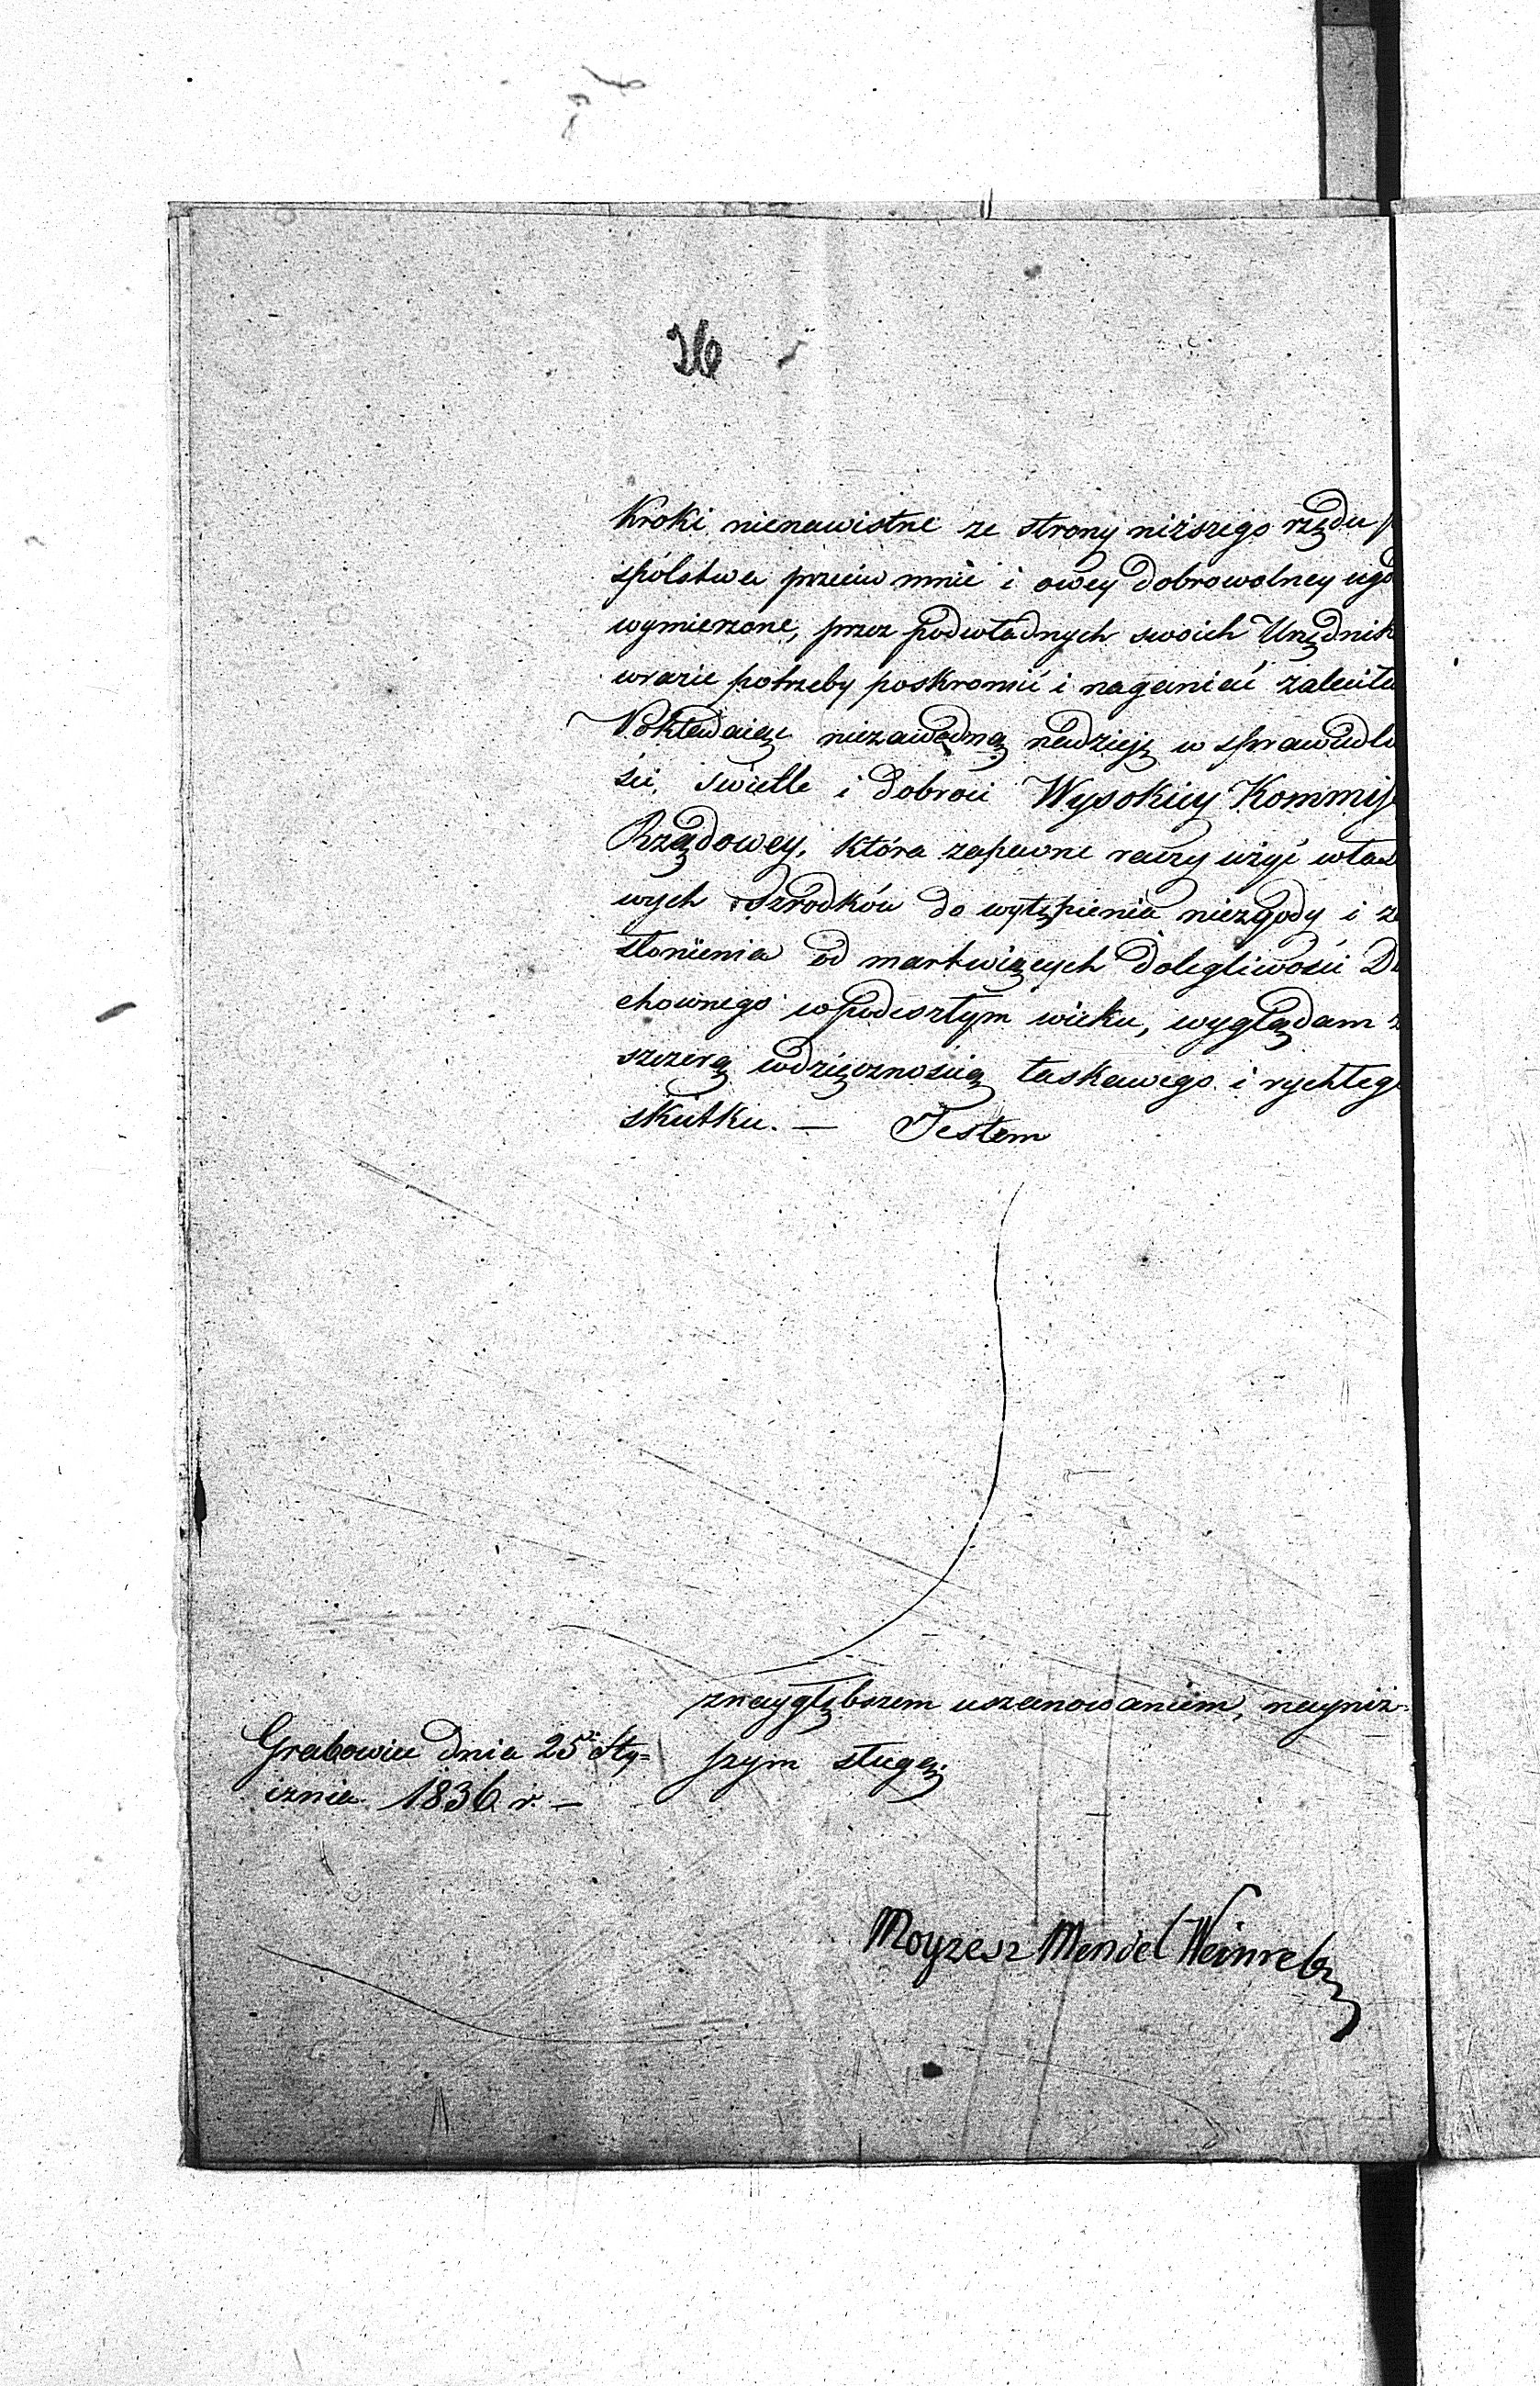 26
Kroki nienawistne ze strony niższego rzędu p
spólstwa przeciw mnie i owey dobrowolney ugo
wymierzone, przez podwładnych swoich Urzędnik
wrazie potrzeby poskromić i naganiać zaleciła
Pokładaiąc niezawodną nadzieję w sprawiedliwo
ści, świetle i dobroci Wysokiey Kommiss
Rządowey, która zapewne raczy użyć właś
wych szrodków do wytępienia niezgody i za
słonienia od martwiących dolegliwości Du
chownego wpodeszłym wieku, wyglądam z
szczerą wdzięcznością łaskawego i rychłego
skutku. — Jestem
znaygłębszem uszanowaniem, nayniż-
szym sługą.
Grabowiec dnia 25. Sty=
cznia 1836 r. —
Moyzesz Mendel Weinreb